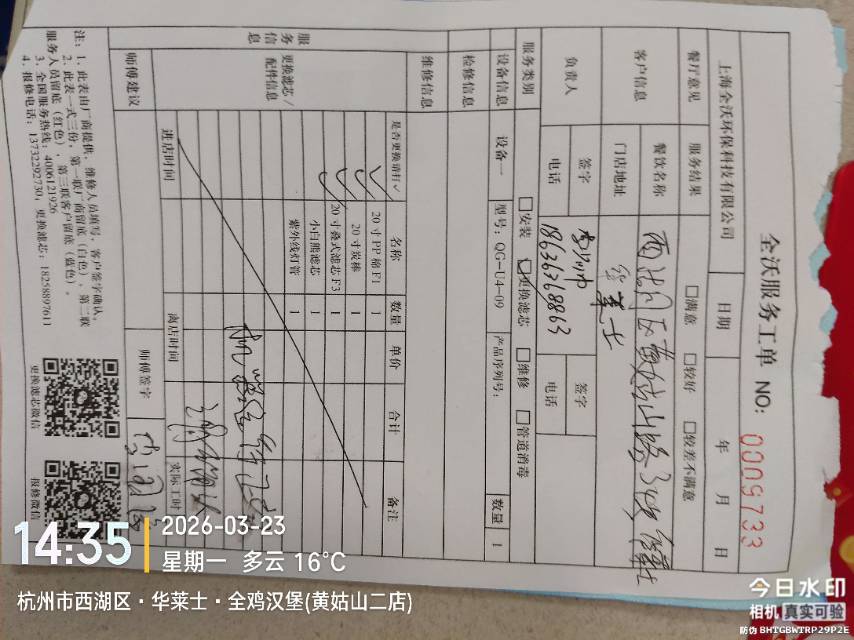 全沃服务工单 NO: 0009733
上海全沃环保科技有限公司 日期 年 月 日
餐厅意见 服务结果 □满意 □较好 □较差不满意
客户信息 餐饮名称
门店地址 华莱士
负责人 签字 签字
电话 18636368863 电话
服务类别 □安装 ☑更换滤芯 □维修 □管道消毒
设备信息 设备一 型号: QG-U4-09 产品序列号: 数量 1
检修信息
维修信息
服务信息
更换滤芯/配件信息 是否更换请打√ 名称 数量 单价 合计 备注
√ 20寸PP棉F1 1
√ 20寸炭棒 1
√ 20寸叠式滤芯F3 1
小白熊滤芯 1
紫外线灯管 1
进店时间 离店时间 实际工时
师傅建议 师傅签字
注: 1、此表由厂商提供, 维修人员填写, 客户签字确认,
2、此表一式三份, 第一联厂商留底(白色), 第二联
服务人员留底(红色), 第三联客户留底(蓝色)。
3、全国服务热线: 4006121926
4、报修电话: 13732292730, 更换滤芯: 18258897611
更换滤芯微信
报修微信
14:35
2026-03-23
星期一 多云 16°C
杭州市西湖区·华莱士·全鸡汉堡(黄姑山二店)
今日水印
相机 真实可验
防伪 BHTGBWTRP29P2E